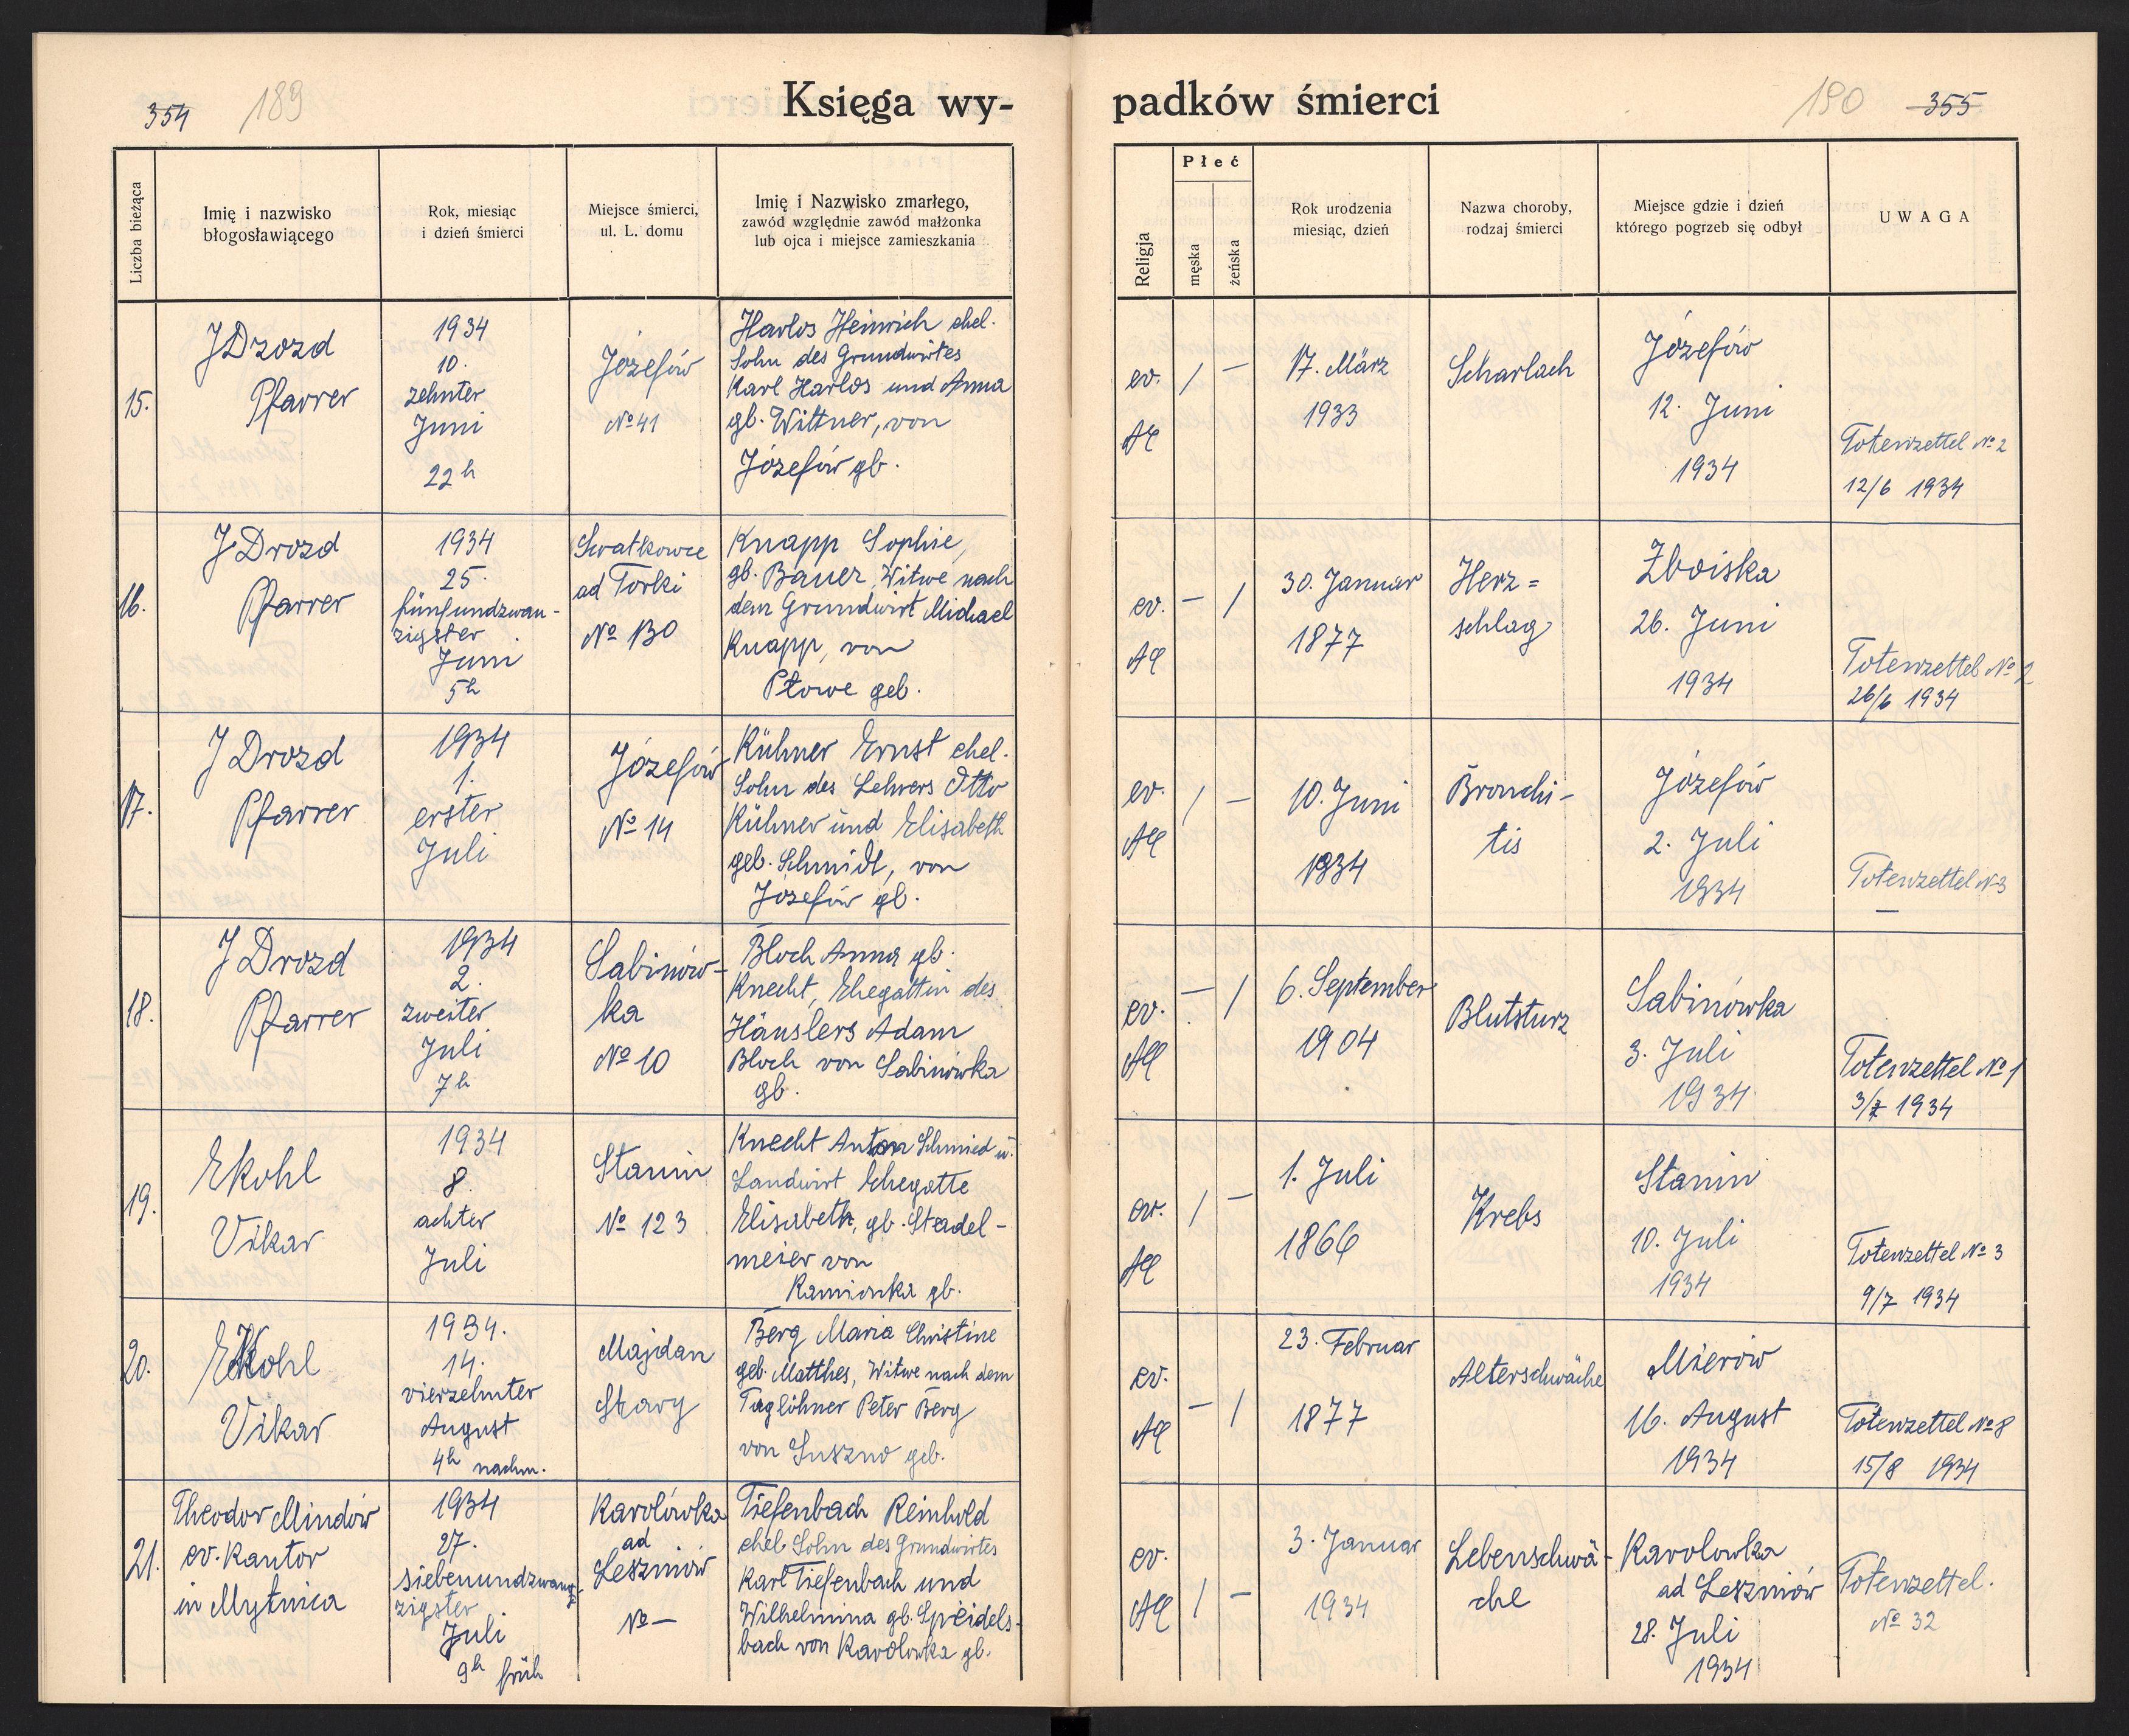 354 189
Księga wy-
padków śmierci
190 355
Liczba bieżąca
Imię i nazwisko
błogosławiącego
Rok, miesiąc
i dzień śmierci
Miejsce śmierci,
ul. L. domu
Imię i Nazwisko zmarłego,
zawód względnie zawód małżonka
lub ojca i miejsce zamieszkania
Religja
Płeć
męska
żeńska
Rok urodzenia
miesiąc, dzień
Nazwa choroby,
rodzaj śmierci
Miejsce gdzie i dzień
którego pogrzeb się odbył
UWAGA
15.
J Drozd
Pfarrer
1934
10.
zehnter
Juni
22 h
Józefów
№ 41
Harlos Heinrich ehel.
Sohn des Grundwirtes
Karl Harlos und Anna
gb. Wittner, von
Józefów gb.
ev.
AC
/ –
17. März
1933
Scharlach
Józefów
12. Juni
1934
Totenzettel № 2
12/6 1934
16.
J Drozd
Pfarrer
1934
25.
fünfundzwan-
zigster
Juni
5 h
Swatkowce
ad Torki
№ 130
Knapp Sophie,
gb. Bauer, Witwe nach
dem Grundwirt Michael
Knapp, von
Płowe geb.
ev.
AC
– /
30. Januar
1877
Herz=
schlag
Zboiska
26. Juni
1934
Totenzettel № 2
26/6 1934
17.
J Drozd
Pfarrer
1934
1.
erster
Juli
Józefów
№ 14
Kühner Ernst ehel.
Sohn des Lehrers Otto
Kühner und Elisabeth
geb. Schmidt, von
Józefów gb.
ev.
AC
/ –
10. Juni
1934
Bronchi-
tis
Józefów
2. Juli
1934
Totenzettel № 3
–
18.
J Drozd
Pfarrer
1934
2.
zweiter
Juli
7 h
Sabinów-
ka
№ 10
Bloch Anna gb.
Knecht, Ehegattin des
Häuslers Adam
Bloch von Sabinówka
gb.
ev.
AC
– /
6. September
1904
Blutsturz
Sabinówka
3. Juli
1934
Totenzettel № 1
3/7 1934
19.
EKohl
Vikar
1934
8.
achter
Juli
Stanin
№ 123
Knecht Anton Schmied u.
Landwirt Ehegatte
Elisabeth, gb. Stadel-
meier von
Kamionka gb.
ev.
AC
/ –
1. Juli
1866
Krebs
Stanin
10. Juli
1934
Totenzettel № 3
9/7 1934
20.
EKohl
Vikar
1934.
14.
vierzehnter
August
4h nachm.
Majdan
Stary
Berg Maria Christine
geb. Matthes, Witwe nach dem
Taglöhner Peter Berg
von Suszno geb.
ev.
AC
– /
23. Februar
1877
Alterschwäche
Mierów
16. August
1934
Totenzettel № 8
15/8 1934
21.
Theodor Mindów
ev. Kantor
in Mytnica
1934
27.
siebenundzwan-
zigster
Juli
9h früh
Karolówka
ad
Leszniów
№ –
Tiefenbach Reinhold
ehel. Sohn des Grundwirtes
Karl Tiefenbach und
Wilhelmina gb. Speidels-
bach von Karolowka gb.
ev.
AC
/ –
3. Januar
1934
Lebenschwä-
che
Karolowka
ad Leszniów
28. Juli
1934
Totenzettel.
№ 32